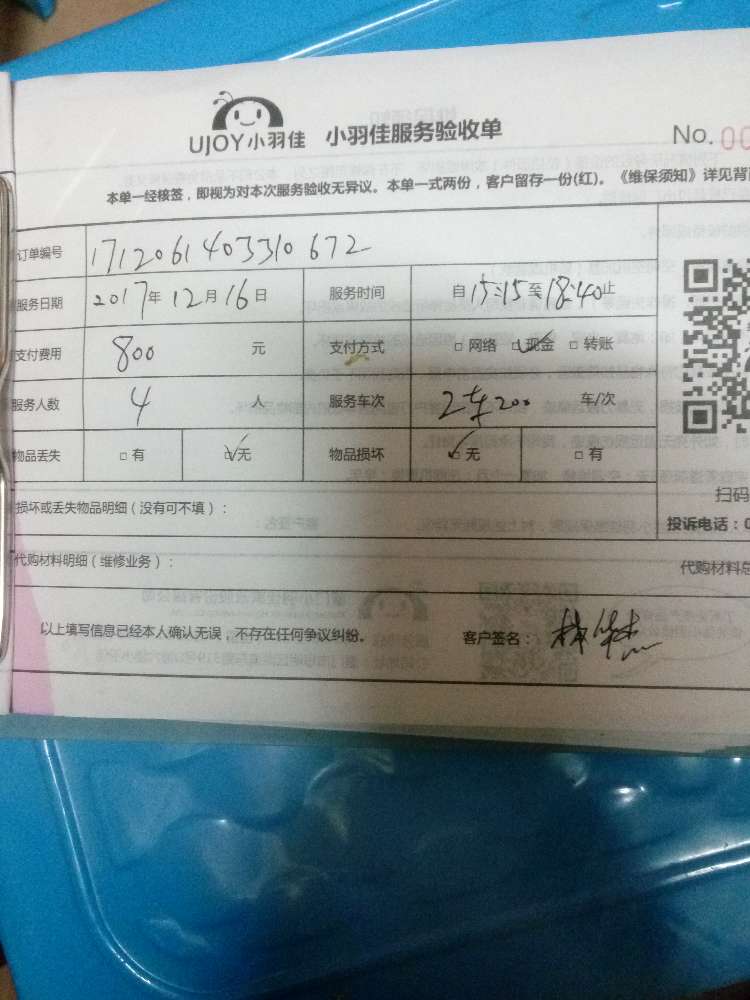 UJOY小羽佳 小羽佳服务验收单
No. 00
本单一经核签，即视为对本次服务验收无异议。本单一式两份，客户留存一份(红)。《维保须知》详见背
订单编号 1712061403310672
服务日期 2017年12月16日 服务时间 自15:15至18:40止
支付费用 800 元 支付方式 □网络 ☑现金 □转账
服务人数 4 人 服务车次 2车200 车/次
物品丢失 □有 ☑无 物品损坏 ☑无 □有
扫码
损坏或丢失物品明细（没有可不填）：
投诉电话：0
代购材料明细（维修业务）：
代购材料总
以上填写信息已经本人确认无误，不存在任何争议纠纷。 客户签名：